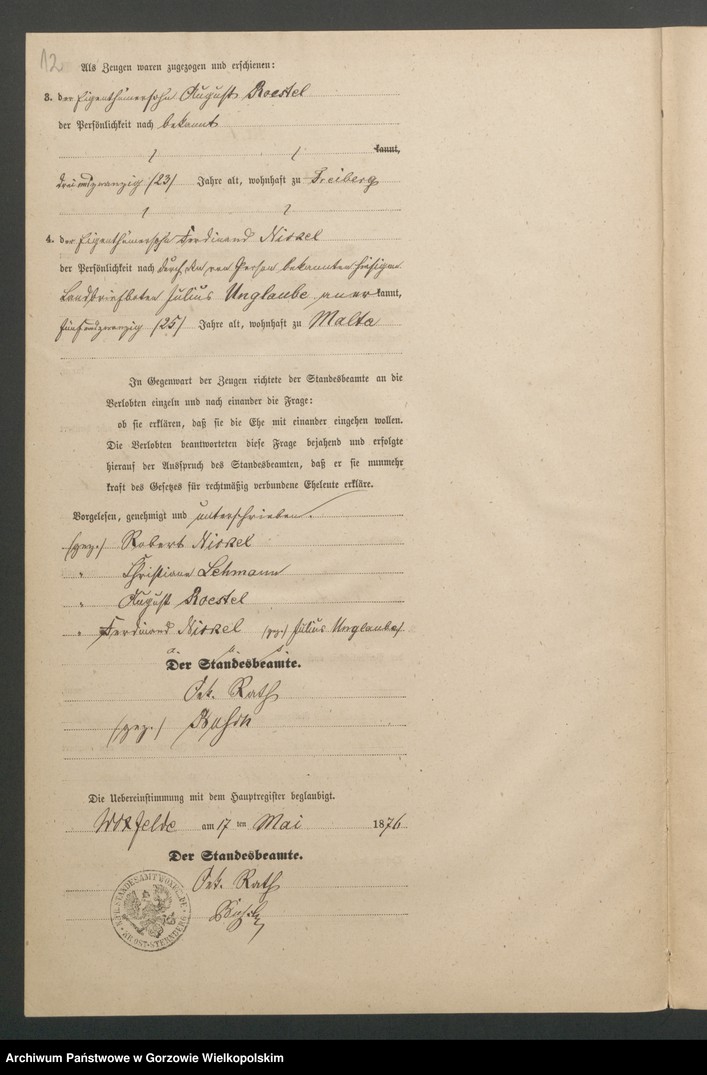 12
Als Zeugen waren zugezogen und erschienen:
3. der Eigenthümersohn August Roestel
der Persönlichkeit nach bekannt
kannt,
dreiundzwanzig /23/ Jahre alt, wohnhaft zu Freiberg
4. der Eigenthümersohn Ferdinand Nickel
der Persönlichkeit nach durch den von Person bekannten hiesigen
Landbriefboten Julius Unglaube anerkannt,
fünfundzwanzig /25/ Jahre alt, wohnhaft zu Malta
In Gegenwart der Zeugen richtete der Standesbeamte an die
Verlobten einzeln und nach einander die Frage:
ob sie erklären, daß sie die Ehe mit einander eingehen wollen.
Die Verlobten beantworteten diese Frage bejahend und erfolgte
hierauf der Ausspruch des Standesbeamten, daß er sie nunmehr
kraft des Gesetzes für rechtmäßig verbundene Eheleute erkläre.
Vorgelesen, genehmigt und unterschrieben.
(gez.) Robert Nickel
" Christiane Lehmann
" August Roestel
" Ferdinand Nickel (gez.) Julius Unglaube
Der Standesbeamte.
Rath
(gez.)
Die Uebereinstimmung mit dem Hauptregister beglaubigt.
Woxfelde am 17 ten Mai 1876
Der Standesbeamte.
Rath
K. PR. STANDESAMT WOXFELDE
KR. OST-STERNBERG
Archiwum Państwowe w Gorzowie Wielkopolskim